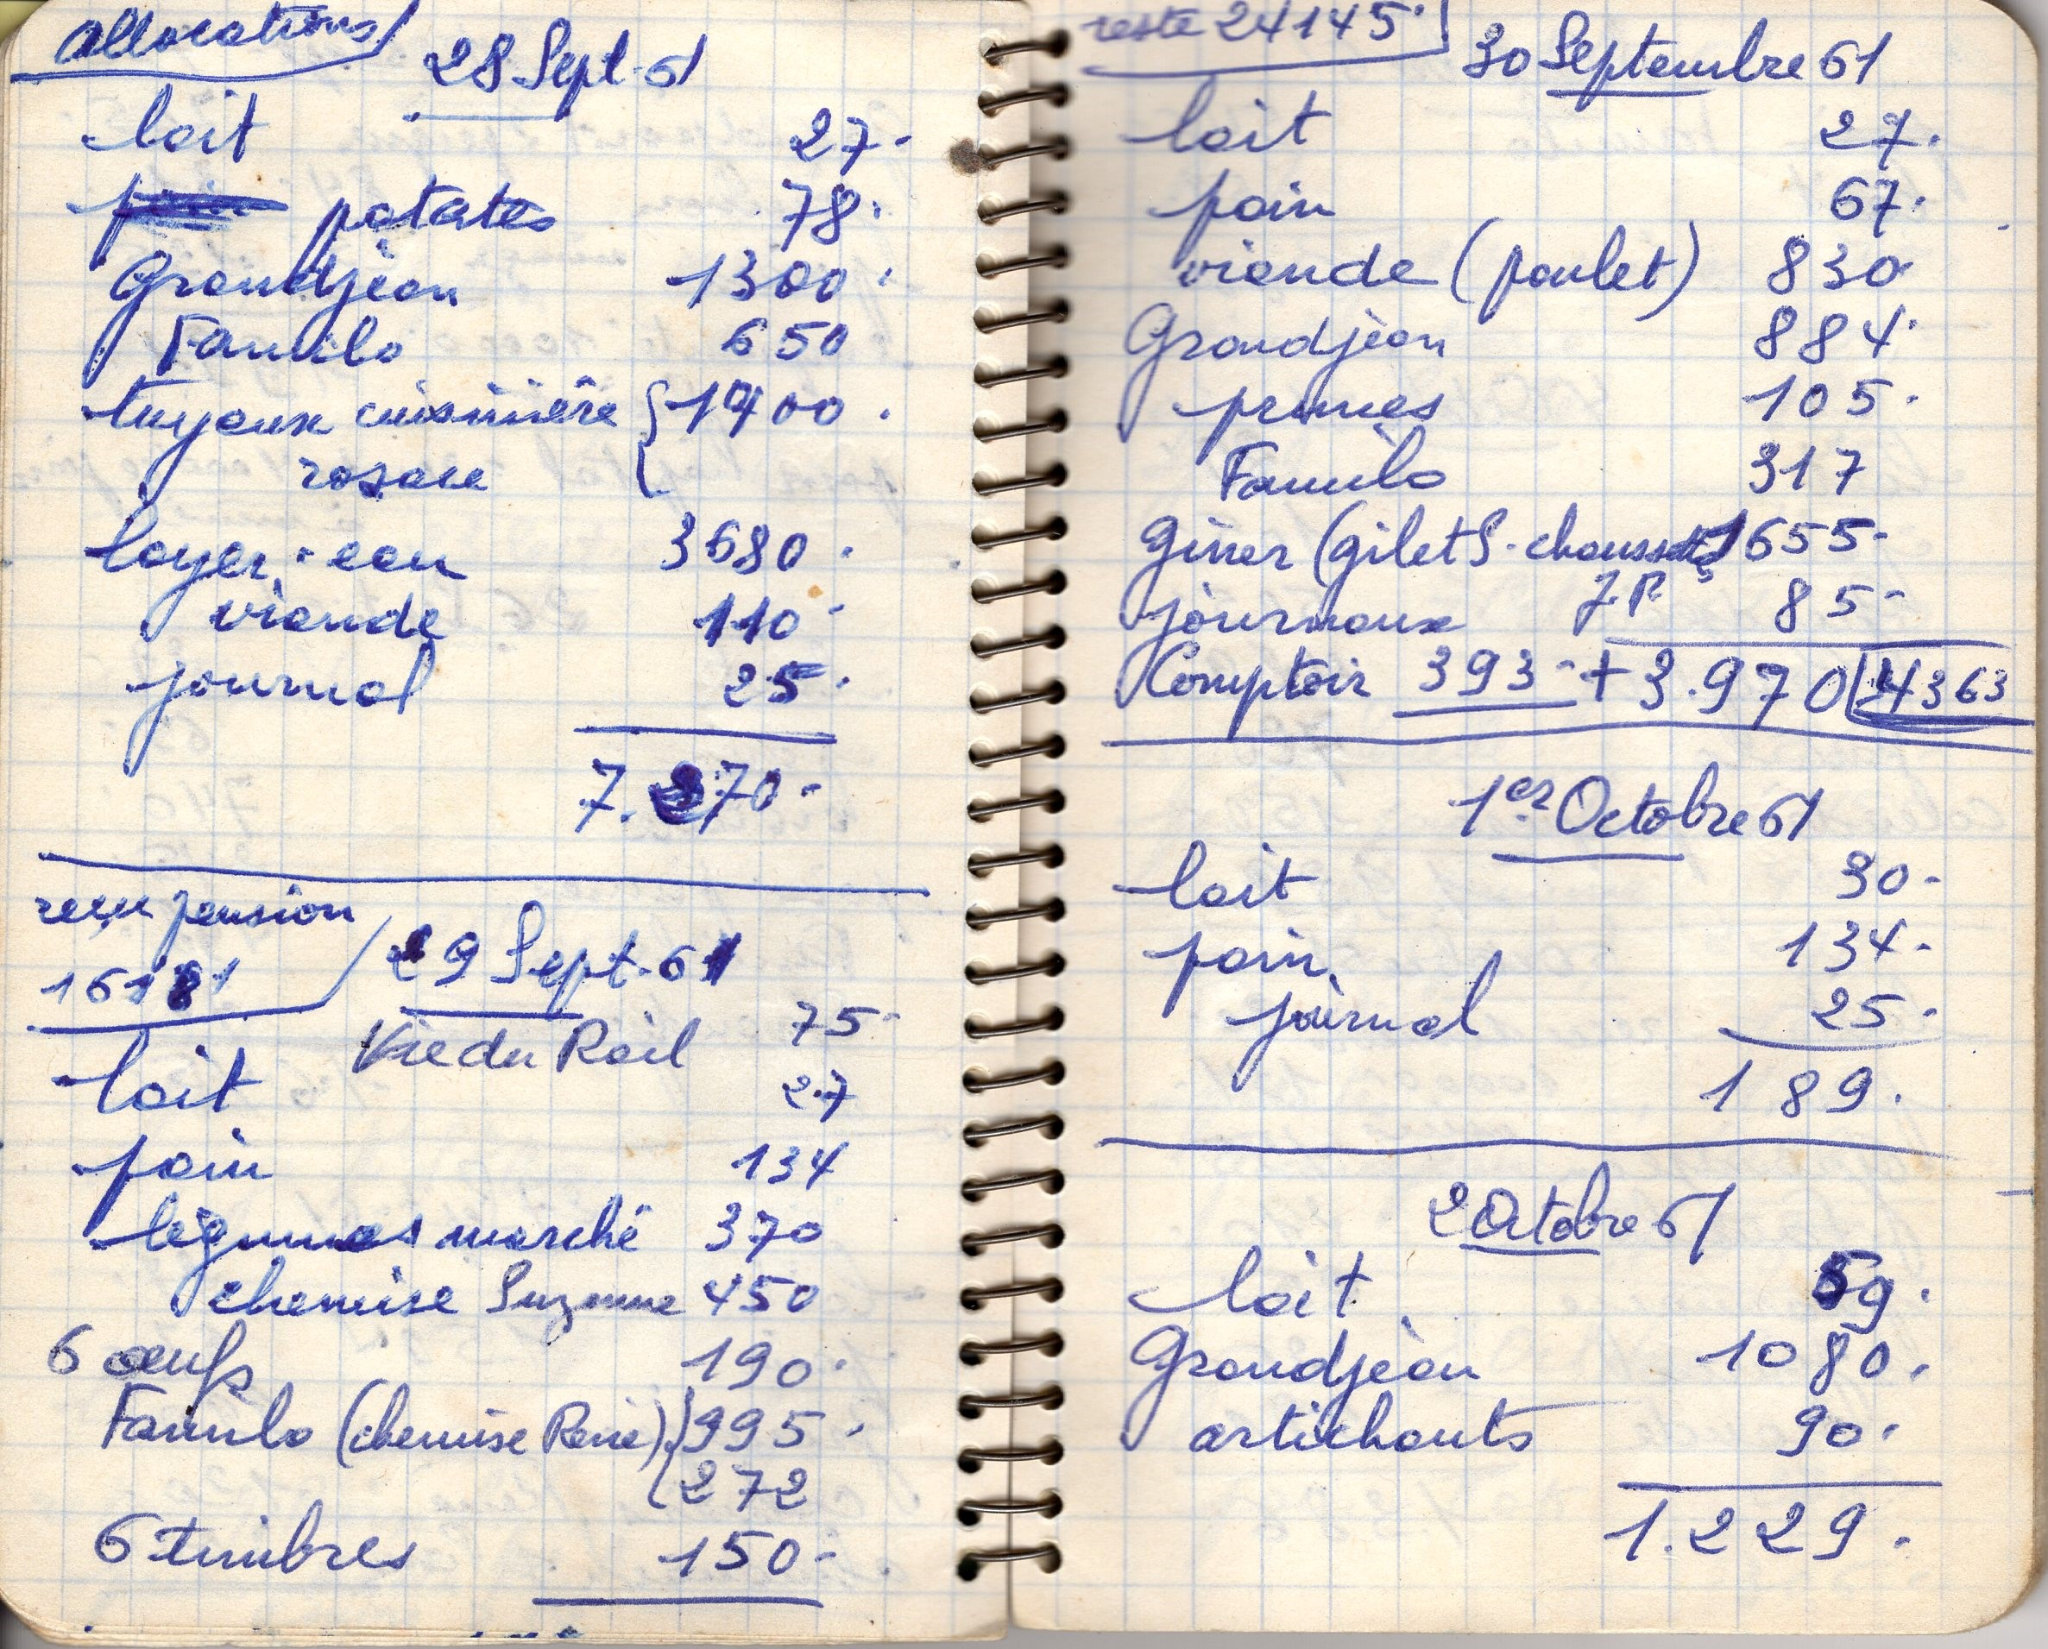 allocations
28 Sept. 61
lait 27.
potates 78.
Grandjean 1300.
Familo 650
tuyaux cuisinière 1400.
rosace
loyer. eau 3680.
viande 110.
journal 25.
7.270.
reçu pension
16181
29 Sept. 61
Vie du Rail 75
lait 27
pain 134
légumes marché 370
chemise Suzanne 450
6 œufs 190.
Familo (chemise René) 995.
272
6 timbres 150.
reste 24145.
30 Septembre 61
lait 27.
pain 67.
viande (poulet) 830
Grandjean 884.
prunes 105.
Familo 317
(gilet S. chaussettes 1655.
journaux 85.
Comptoir 393 + 3.970 4363
1er Octobre 61
lait 30.
pain 134.
journal 25.
189.
2 Octobre 61
lait 59.
Grandjean 1080.
artichauts 90.
1.229.